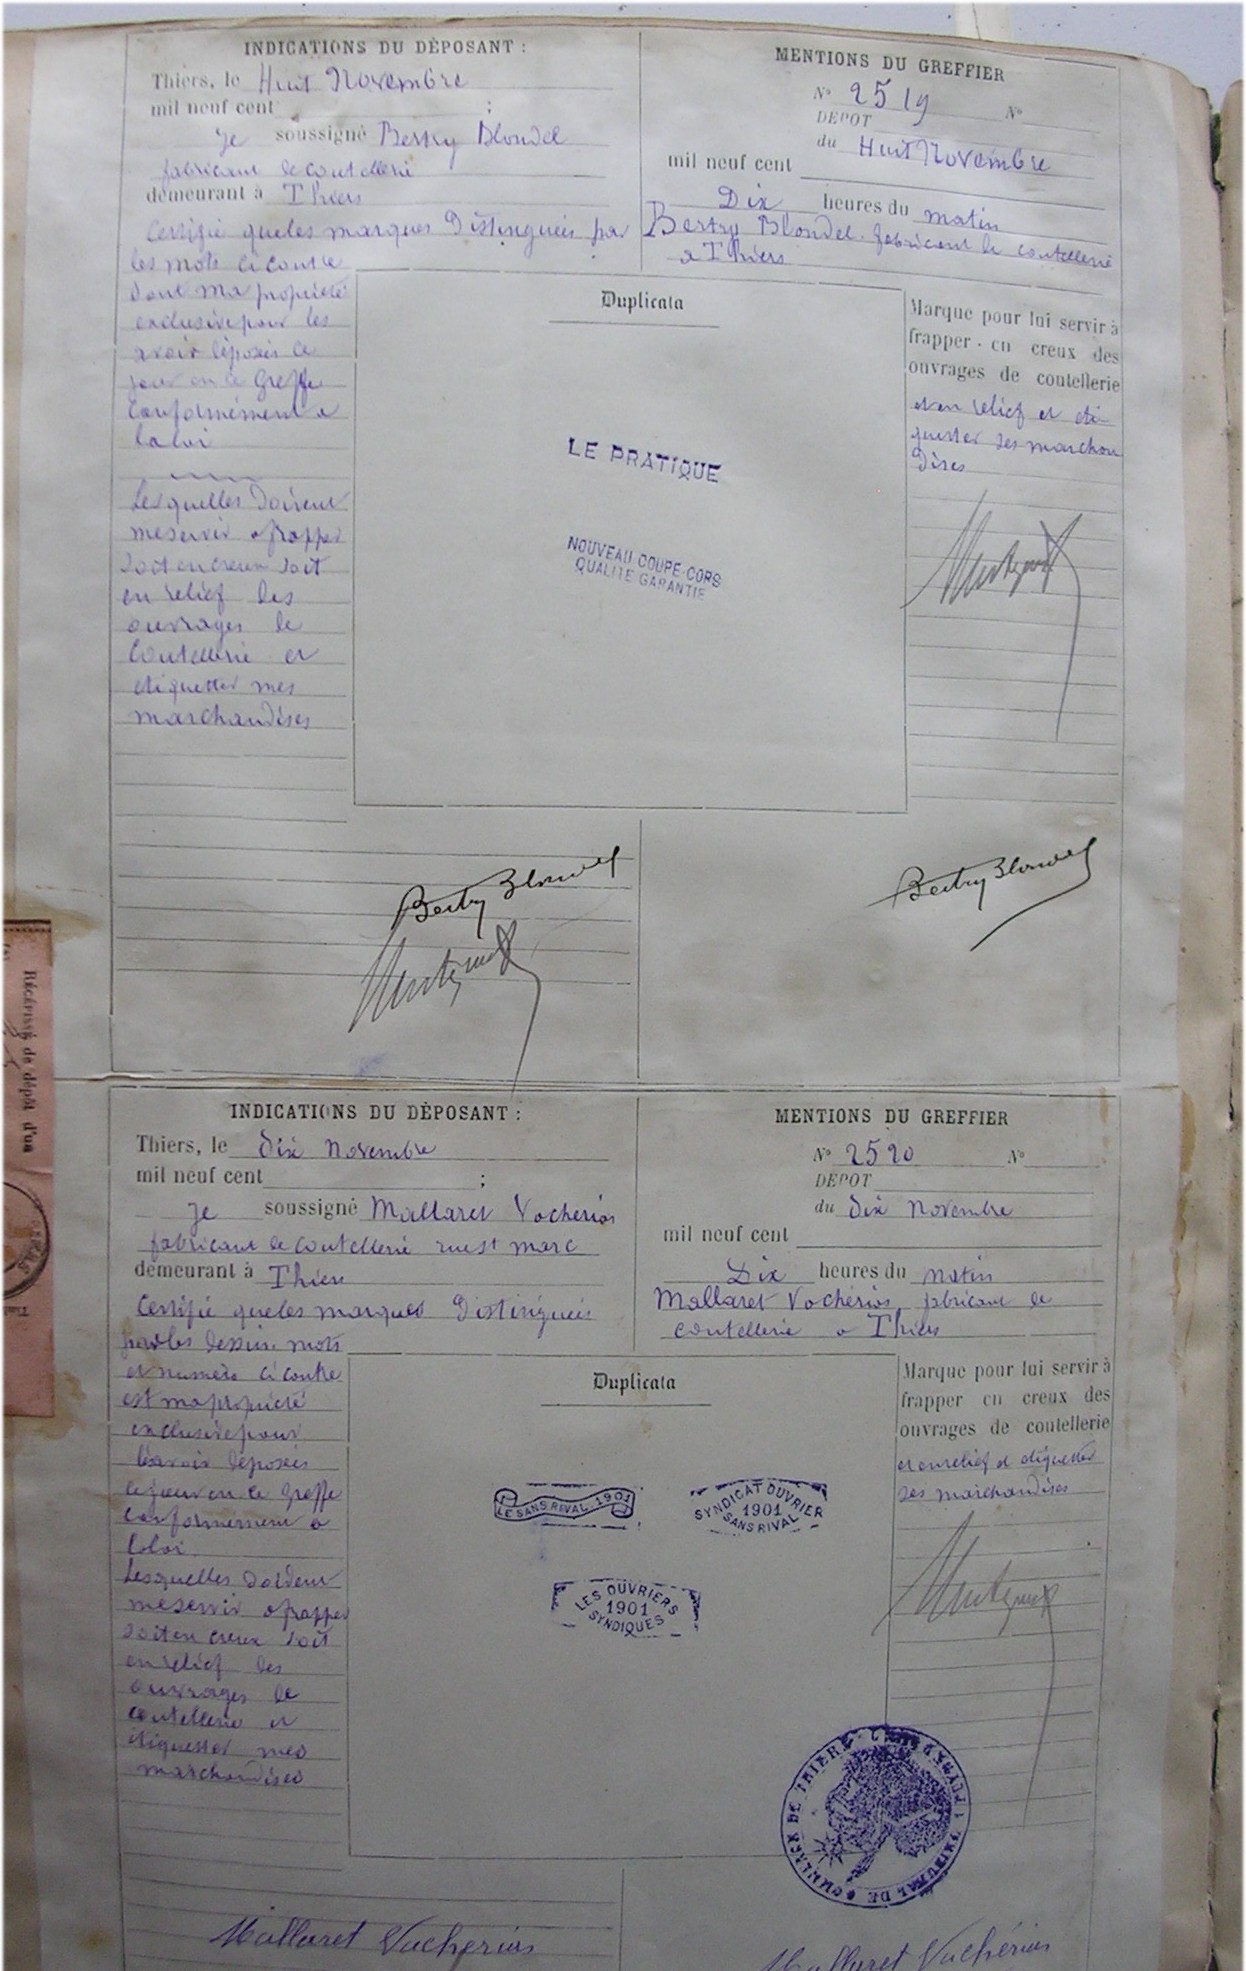 INDICATIONS DU DÉPOSANT :
Thiers, le Huit Novembre
mil neuf cent ;
Je soussigné Bestry Blondel
fabricant de coutellerie
demeurant à Thiers
Certifie que les marques Distinguées par
les mots ci contre
Sont ma propriété
exclusive pour les
avoir déposés ce
jour en ce Greffe
Conformément a
la loi
Lesquelles Doivent
me servir a frapper
Soit en creux soit
en relief des
ouvrages de
Coutellerie et
etiquetter mes
marchandises
MENTIONS DU GREFFIER
N° 2519 N°
DÉPOT
du Huit Novembre
mil neuf cent
Dix heures du matin
Bestry Blondel fabricant de coutellerie
a Thiers
Duplicata
LE PRATIQUE
NOUVEAU COUPE-CORS
QUALITE GARANTIE
Marque pour lui servir à
frapper en creux des
ouvrages de coutellerie
et en relief et eti
quetter ses marchan
dises
Bestry Blondel
Bestry Blondel
Récépissé de dépôt d'un
INDICATIONS DU DÉPOSANT :
Thiers, le dix novembre
mil neuf cent ;
Je soussigné Mallaret Vacherias
fabricant de coutellerie rue st marc
demeurant à Thiers
Certifie que les marques Distinguées
par les dessins mots
et numéro ci contre
est ma propriété
exclusive pour
l'avoir déposés
ce jour en ce Greffe
conformement a
la loi
Lesquelles doivent
me servir a frapper
soit en creux soit
en relief des
ouvrages de
coutellerie et
étiquetter mes
marchandises
MENTIONS DU GREFFIER
N° 2520 N°
DÉPOT
du dix novembre
mil neuf cent
Dix heures du matin
Mallaret Vacherias fabricant de
coutellerie a Thiers
Duplicata
LE SANS RIVAL. 1901
SYNDICAT OUVRIER
1901
SANS RIVAL
LES OUVRIERS
1901
SYNDIQUES
Marque pour lui servir à
frapper en creux des
ouvrages de coutellerie
et en relief et etiquetter
ses marchandises
TRIBUNAL DE COMMERCE DE THIERS
Mallaret Vacherias
Mallaret Vacherias